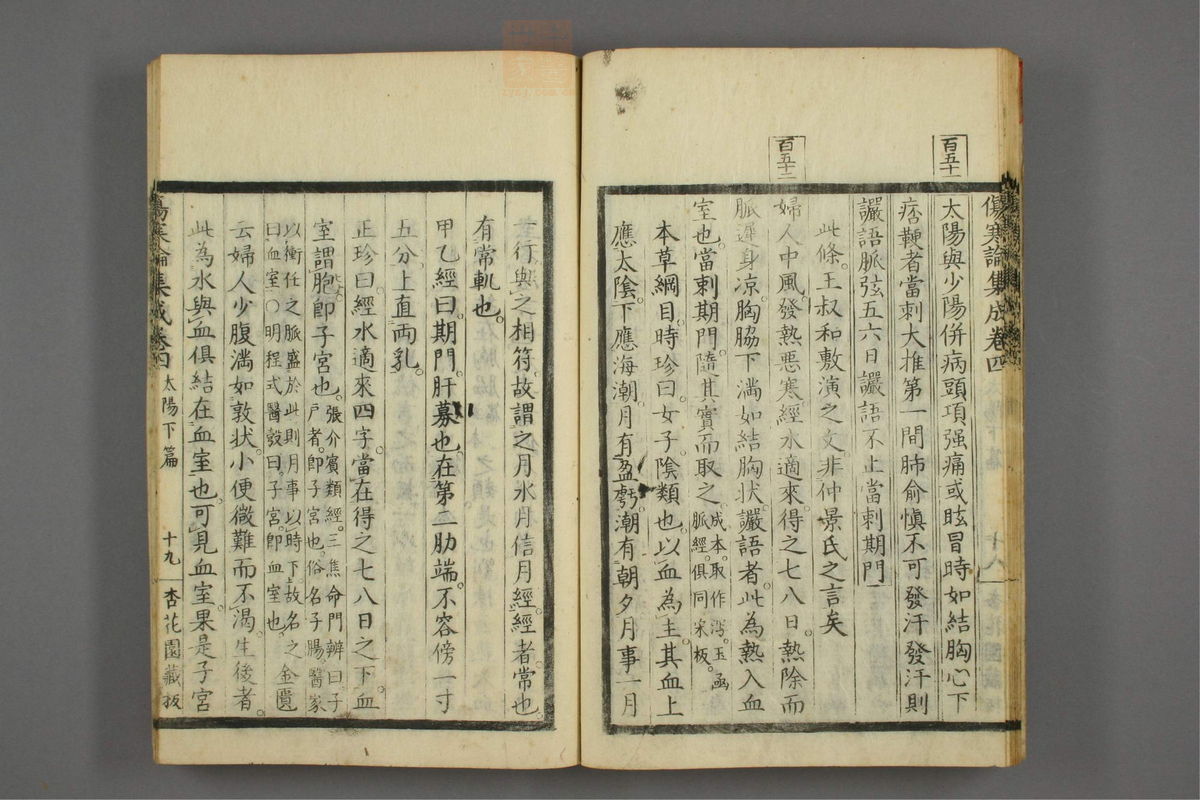 百五十一
百五十二
傷寒論集成卷四
太陽與少陽併病頭項强痛或眩冒時如結胸心下
痞鞕者當刺大推第一間肺俞愼不可發汗發汗則
讝語脈弦五六日讝語不止當刺期門
此條。王叔和敷演之文。非仲景氏之言矣
婦人中風。發熱惡寒經水適來。得之七八日。熱除而
脈遲身凉。胸脇下滿如結胸狀。讝語者。此為熱入血
室也。當刺期門。隨其實而取之。成本。取作瀉。玉函
脈經。俱同宋板。
本草綱目。時珍曰。女子陰類也。以血為主。其血上
應太陰。下應海潮。月有盈虧。潮有朝夕。月事一月
一行與之相符。故謂之月水月信月經。經者。常也。
有常軌也。
甲乙經曰。期門。肝募也。在第二肋端。不容傍一寸
五分。上直両乳。
正珍曰。經水適來四字。當在得之七八日之下。血
室謂胞。即子宮也。張介賓類經。三焦命門辨曰。子
戶者。即子宮也。俗名子腸。醫家
以衝任之脈盛於此。則月事以時下。故名之
曰血室。〇明程式醫彀曰。子宮。即血室也。金匱
云。婦人少腹滿如敦狀。小便微難而不渴。生後者。
此為水與血俱結在血室也。可見血室果是子宮
傷寒論集成卷四 太陽下篇 十九 杏花園藏板